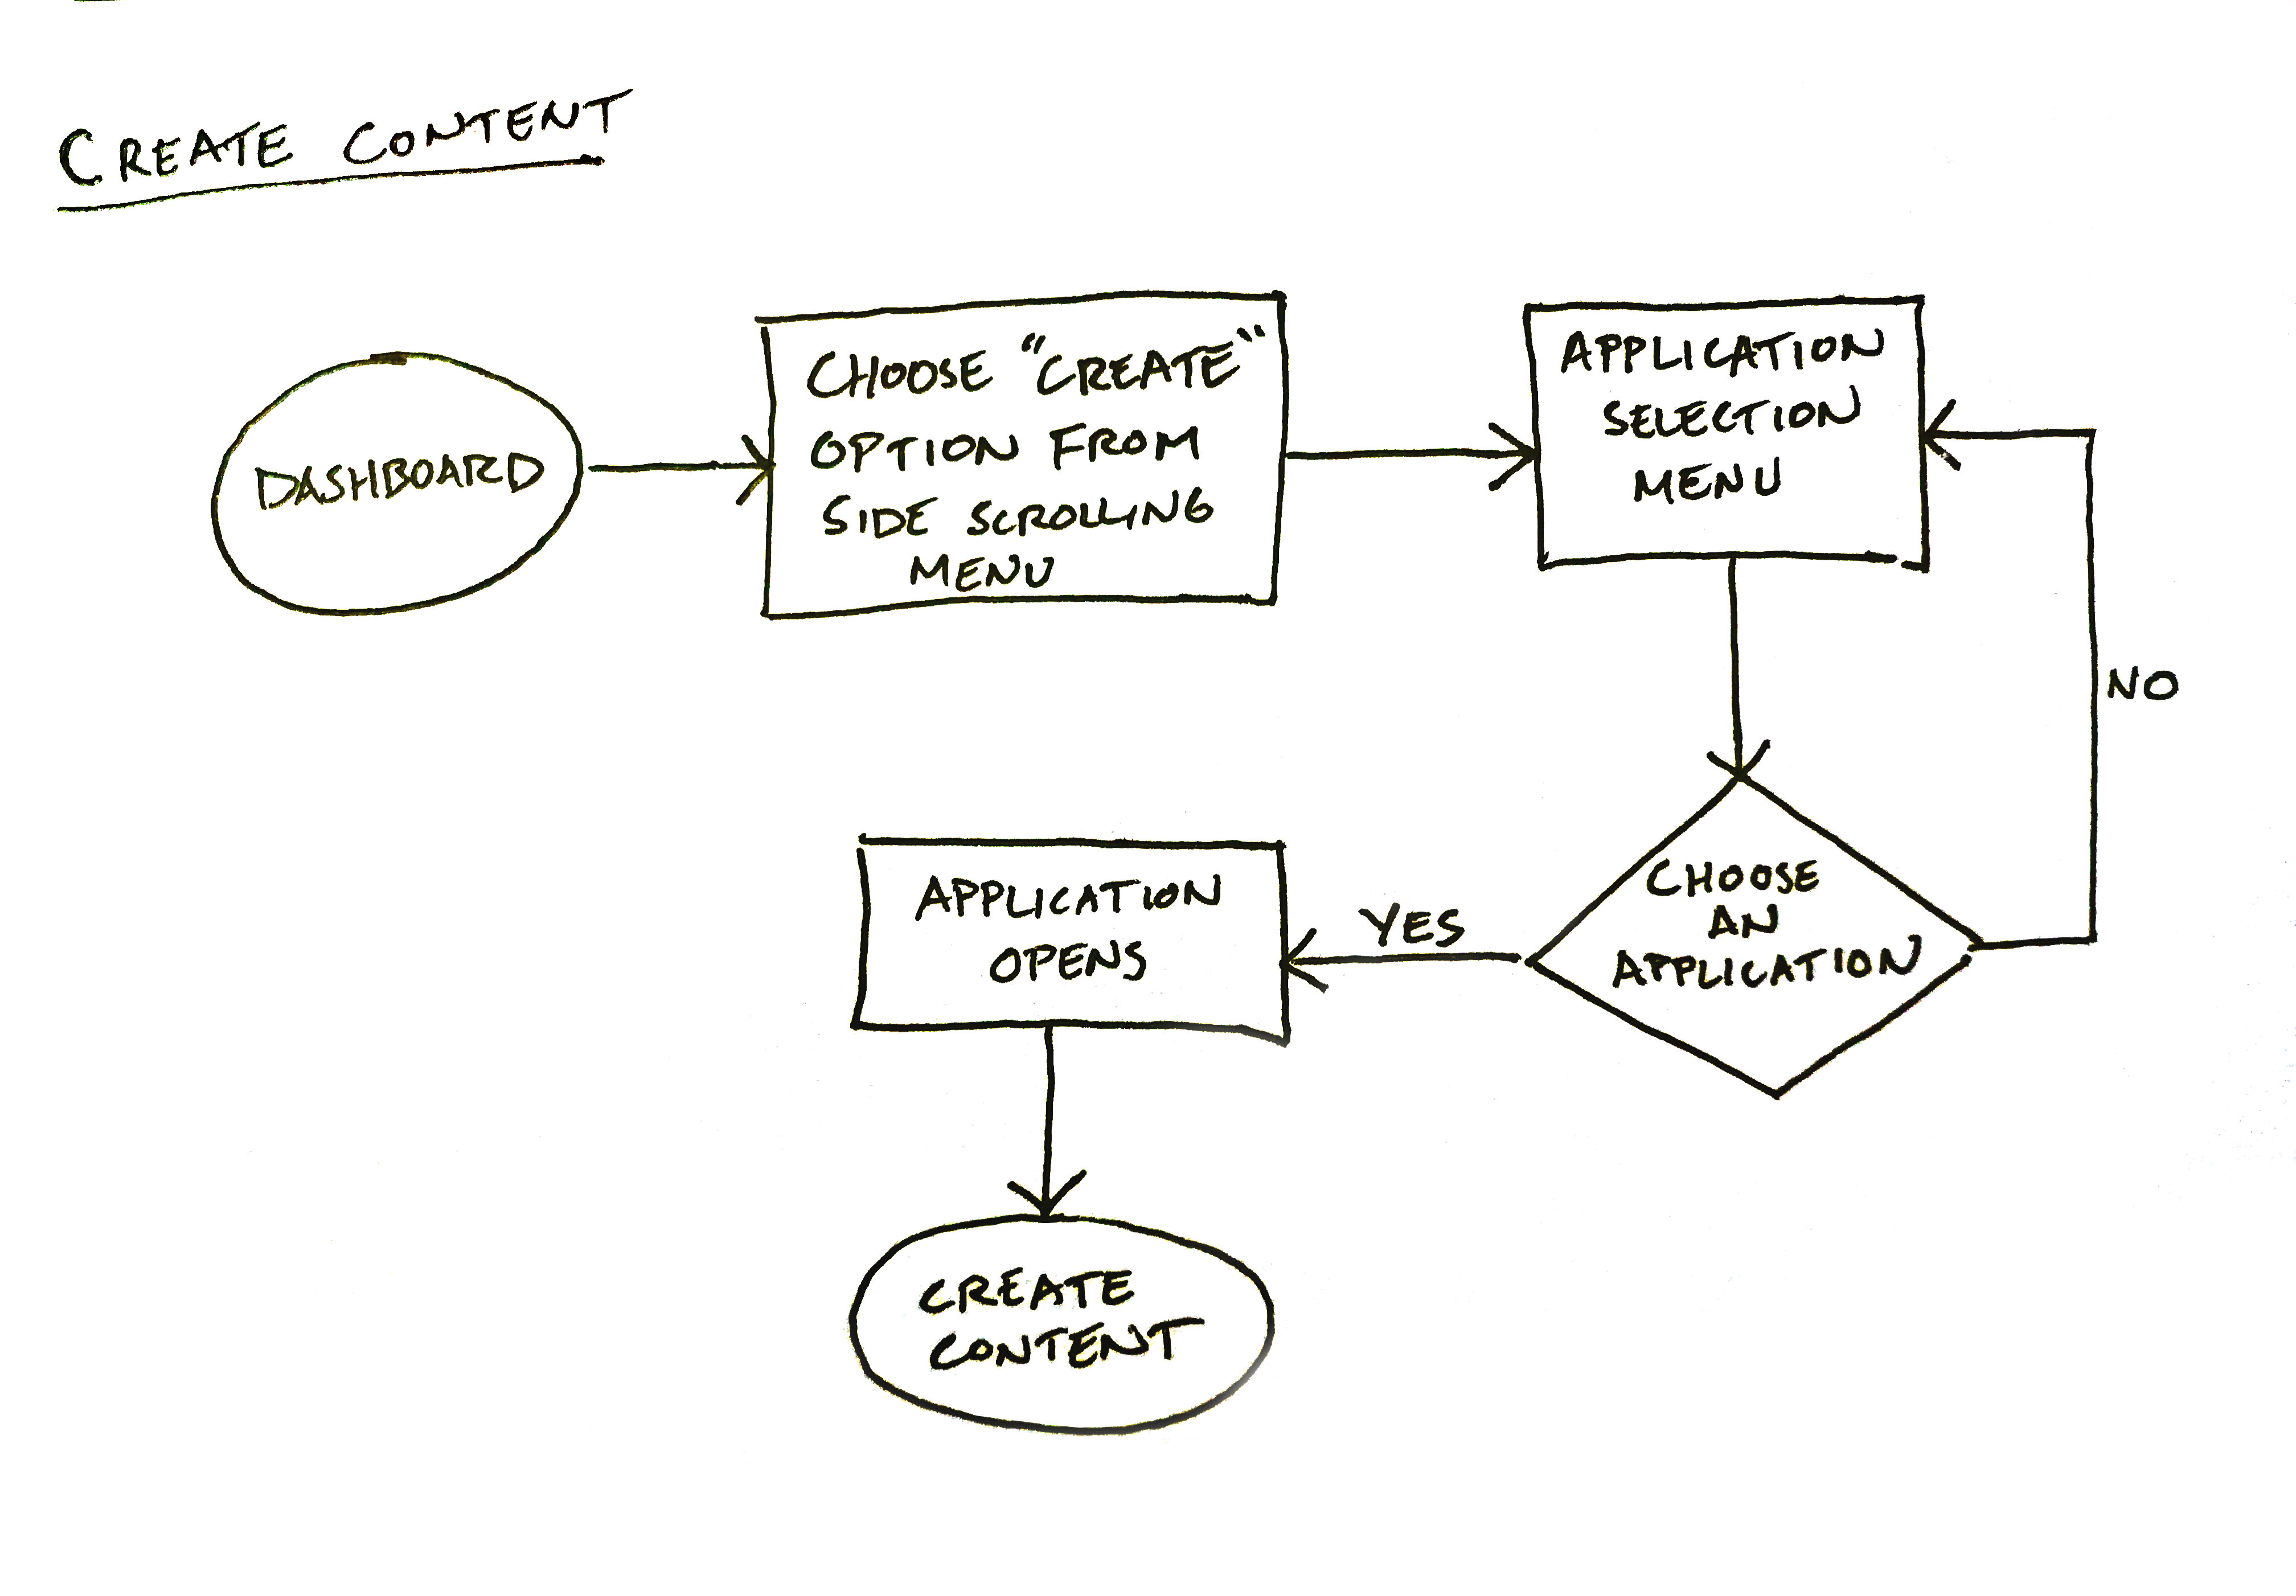 CREATE CONTENT
DASHBOARD
CHOOSE "CREATE"
OPTION FROM
SIDE SCROLLING
MENU
APPLICATION
SELECTION
MENU
NO
CHOOSE
AN
APPLICATION
YES
APPLICATION
OPENS
CREATE
CONTENT